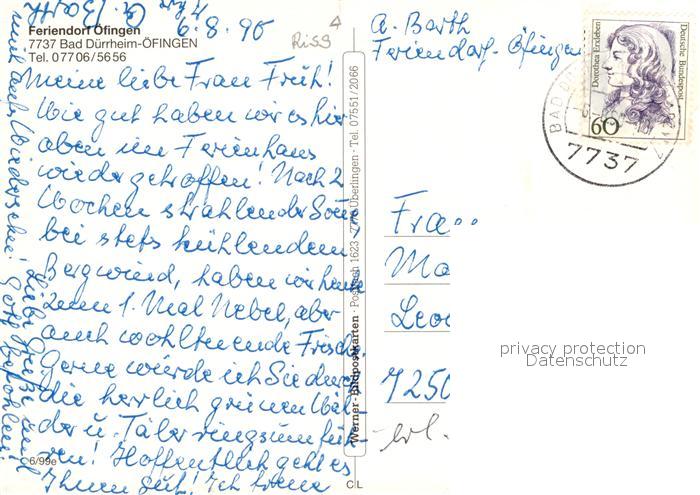 Feriendorf Öfingen
7737 Bad Dürrheim-ÖFINGEN
Tel. 07706/5656
6.8.90
Riss
4
A. Barth
Feriendorf-Öfingen
Meine liebe Frau Früh!
Wie gut haben wir es hier
oben im Ferienhaus
wieder getroffen! Nach 2
Wochen strahlender Sonne,
bei stets kühlendem
Bergwind, haben wir heute
zum 1. Mal Nebel, aber
auch wohltuende Frische.
Gerne würde ich Sie durch
die herrlich grünen Wäl-
der u. Täler ringsum füh-
ren! Hoffentlich geht es
Ihnen gut! Ich freue
mich aufs Wiedersehen! Liebe Grüße und
Gott befohlen!
A. Barth
6/99e
Werner-Bildpostkarten · Postfach 1623 · 7770 Überlingen · Tel. 07551/2066
CL
Dorothea Erxleben
Deutsche Bundespost
60
BAD
7737
Fra
Ma
Leo
7250
privacy protection
Datenschutz